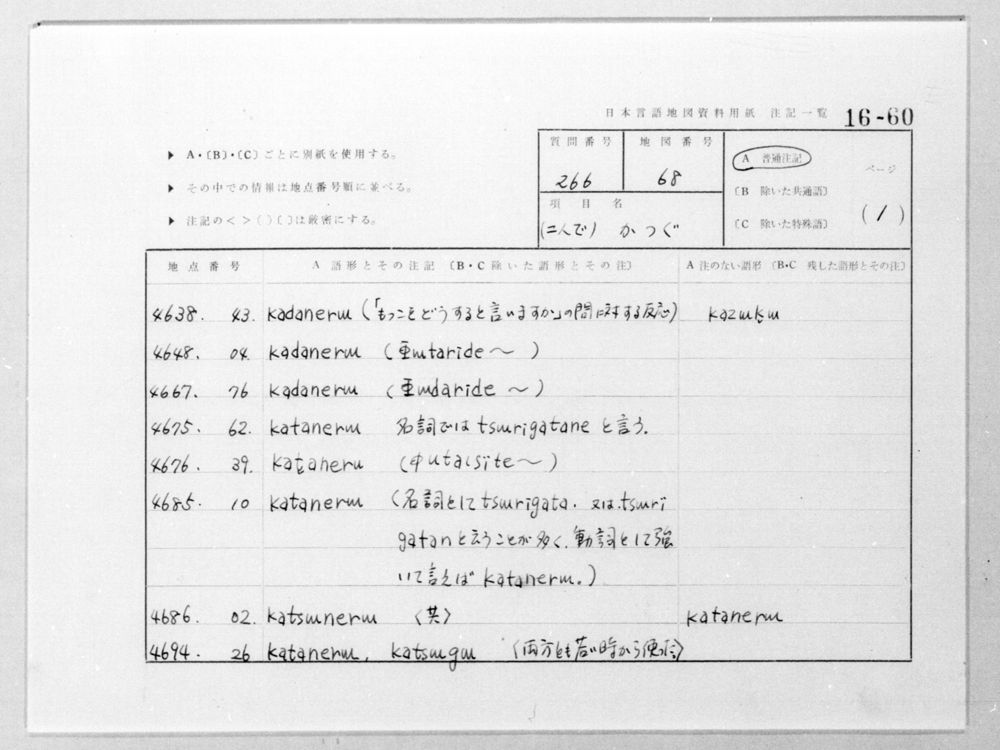 日本言語地図資料用紙 注記一覧 16-60
▶ A・〔B〕・〔C〕ごとに別紙を使用する。
▶ その中での情報は地点番号順に並べる。
▶ 注記の<>()〔〕は厳密にする。
質問番号 地図番号
266 68
項目名
(二人で) かつぐ
A 普通注記
〔B 除いた共通語〕
〔C 除いた特殊語〕
ページ
(1)
地点番号 A 語形とその注記〔B・C除いた語形とその注〕 A 注のない語形〔B・C 残した語形とその注〕
4638. 43. kadanerɯ (「もっこをどうすると言いますか」の問に対する反応) kazɯkɯ
4648. 04. kadanerɯ (ɸɯtaride〜)
4667. 76 kadanerɯ (ɸɯdaride〜)
4675. 62. katanerɯ 名詞ではtsɯrigataneと言う.
4676. 39. kataneru (ɸutaisite〜)
4685. 10 katanerɯ (名詞としてtsɯrigata. 又は.tsɯri
gatanと言うことが多く、動詞として強
いて言えばkatanerɯ.)
4686. 02. katsɯnerɯ 〈共〉 katanerɯ
4694. 26 katanerɯ, katsɯgɯ 〈両方とも若い時から使う〉